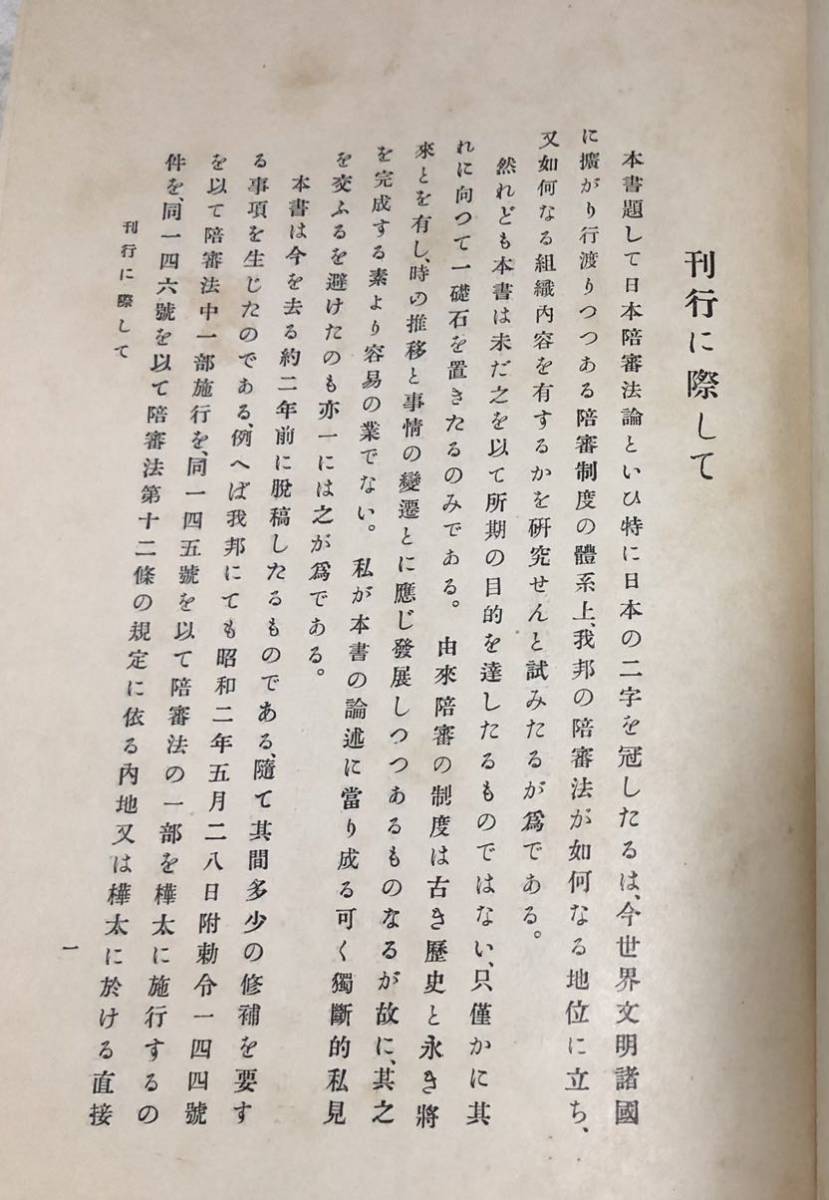 刊行に際して
本書題して日本陪審法論といひ特に日本の二字を冠したるは、今世界文明諸國
に擴がり行渡りつつある陪審制度の體系上、我邦の陪審法が如何なる地位に立ち、
又如何なる組織內容を有するかを硏究せんと試みたるが爲である。
然れども本書は未だ之を以て所期の目的を達したるものではない、只僅かに其
れに向つて一礎石を置きたるのみである。由來陪審の制度は古き歷史と永き將
來とを有し、時の推移と事情の變遷とに應じ發展しつつあるものなるが故に、其之
を完成する素より容易の業でない。私が本書の論述に當り成る可く獨斷的私見
を交ふるを避けたのも亦一には之が爲である。
本書は今を去る約二年前に脫稿したるものである、隨て其間多少の修補を要す
る事項を生じたのである、例へば我邦にても昭和二年五月二八日附勅令一四四號
を以て陪審法中一部施行を、同一四五號を以て陪審法の一部を樺太に施行するの
件を、同一四六號を以て陪審法第十二條の規定に依る內地又は樺太に於ける直接
刊行に際して
一